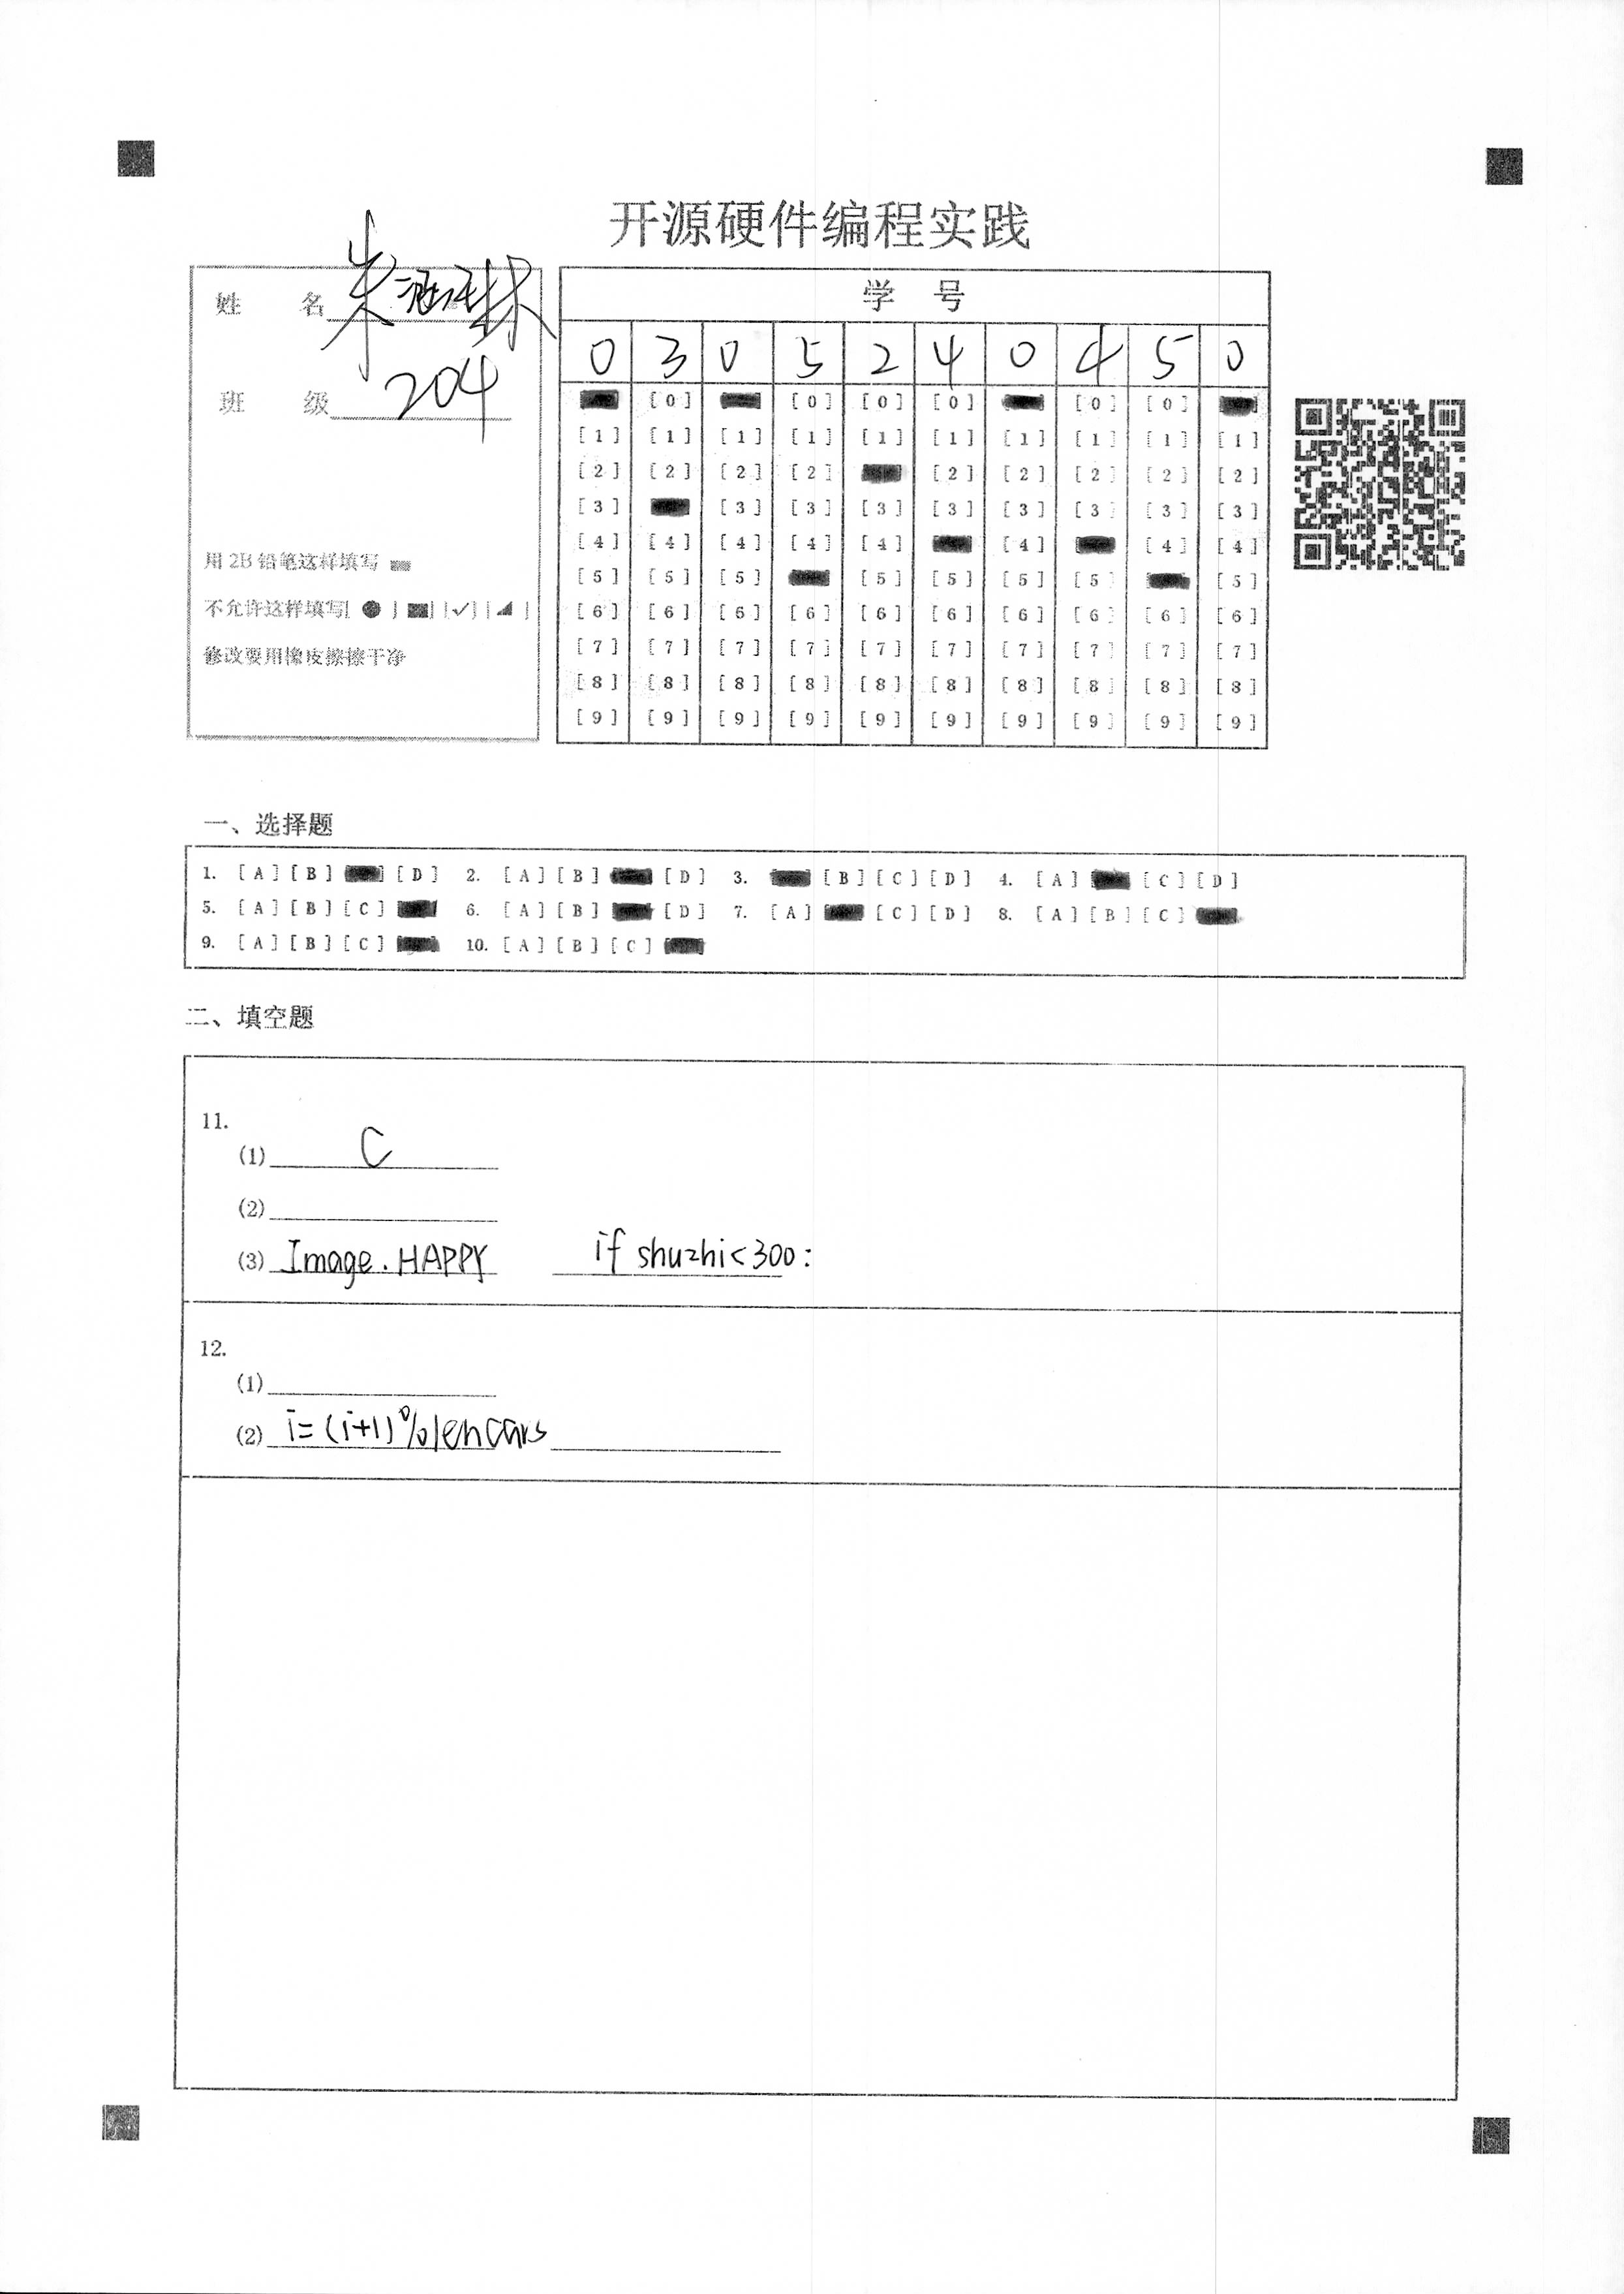 开源硬件编程实践
姓 名 朱
班 级 204
用 2B 铅笔这样填写
不允许这样填写[ ● ] [ ■ ] [ ✓ ] [ ◢ ]
修改要用橡皮擦擦干净
学 号
0 3 0 5 2 4 0 4 5 0
[0] [0] [0] [0] [0] [0]
[1] [1] [1] [1] [1] [1] [1] [1] [1] [1]
[2] [2] [2] [2] [2] [2] [2] [2] [2]
[3] [3] [3] [3] [3] [3] [3] [3] [3]
[4] [4] [4] [4] [4] [4] [4] [4]
[5] [5] [5] [5] [5] [5] [5] [5]
[6] [6] [6] [6] [6] [6] [6] [6] [6] [6]
[7] [7] [7] [7] [7] [7] [7] [7] [7] [7]
[8] [8] [8] [8] [8] [8] [8] [8] [8] [8]
[9] [9] [9] [9] [9] [9] [9] [9] [9] [9]
一、选择题
1. [A] [B] [D] 2. [A] [B] [D] 3. [B] [C] [D] 4. [A] [C] [D]
5. [A] [B] [C] 6. [A] [B] [D] 7. [A] [C] [D] 8. [A] [B] [C]
9. [A] [B] [C] 10. [A] [B] [C]
二、填空题
11.
(1) C
(2)
(3) Image.HAPPY if shuzhi<300:
12.
(1)
(2) i=(i+1)%len cars